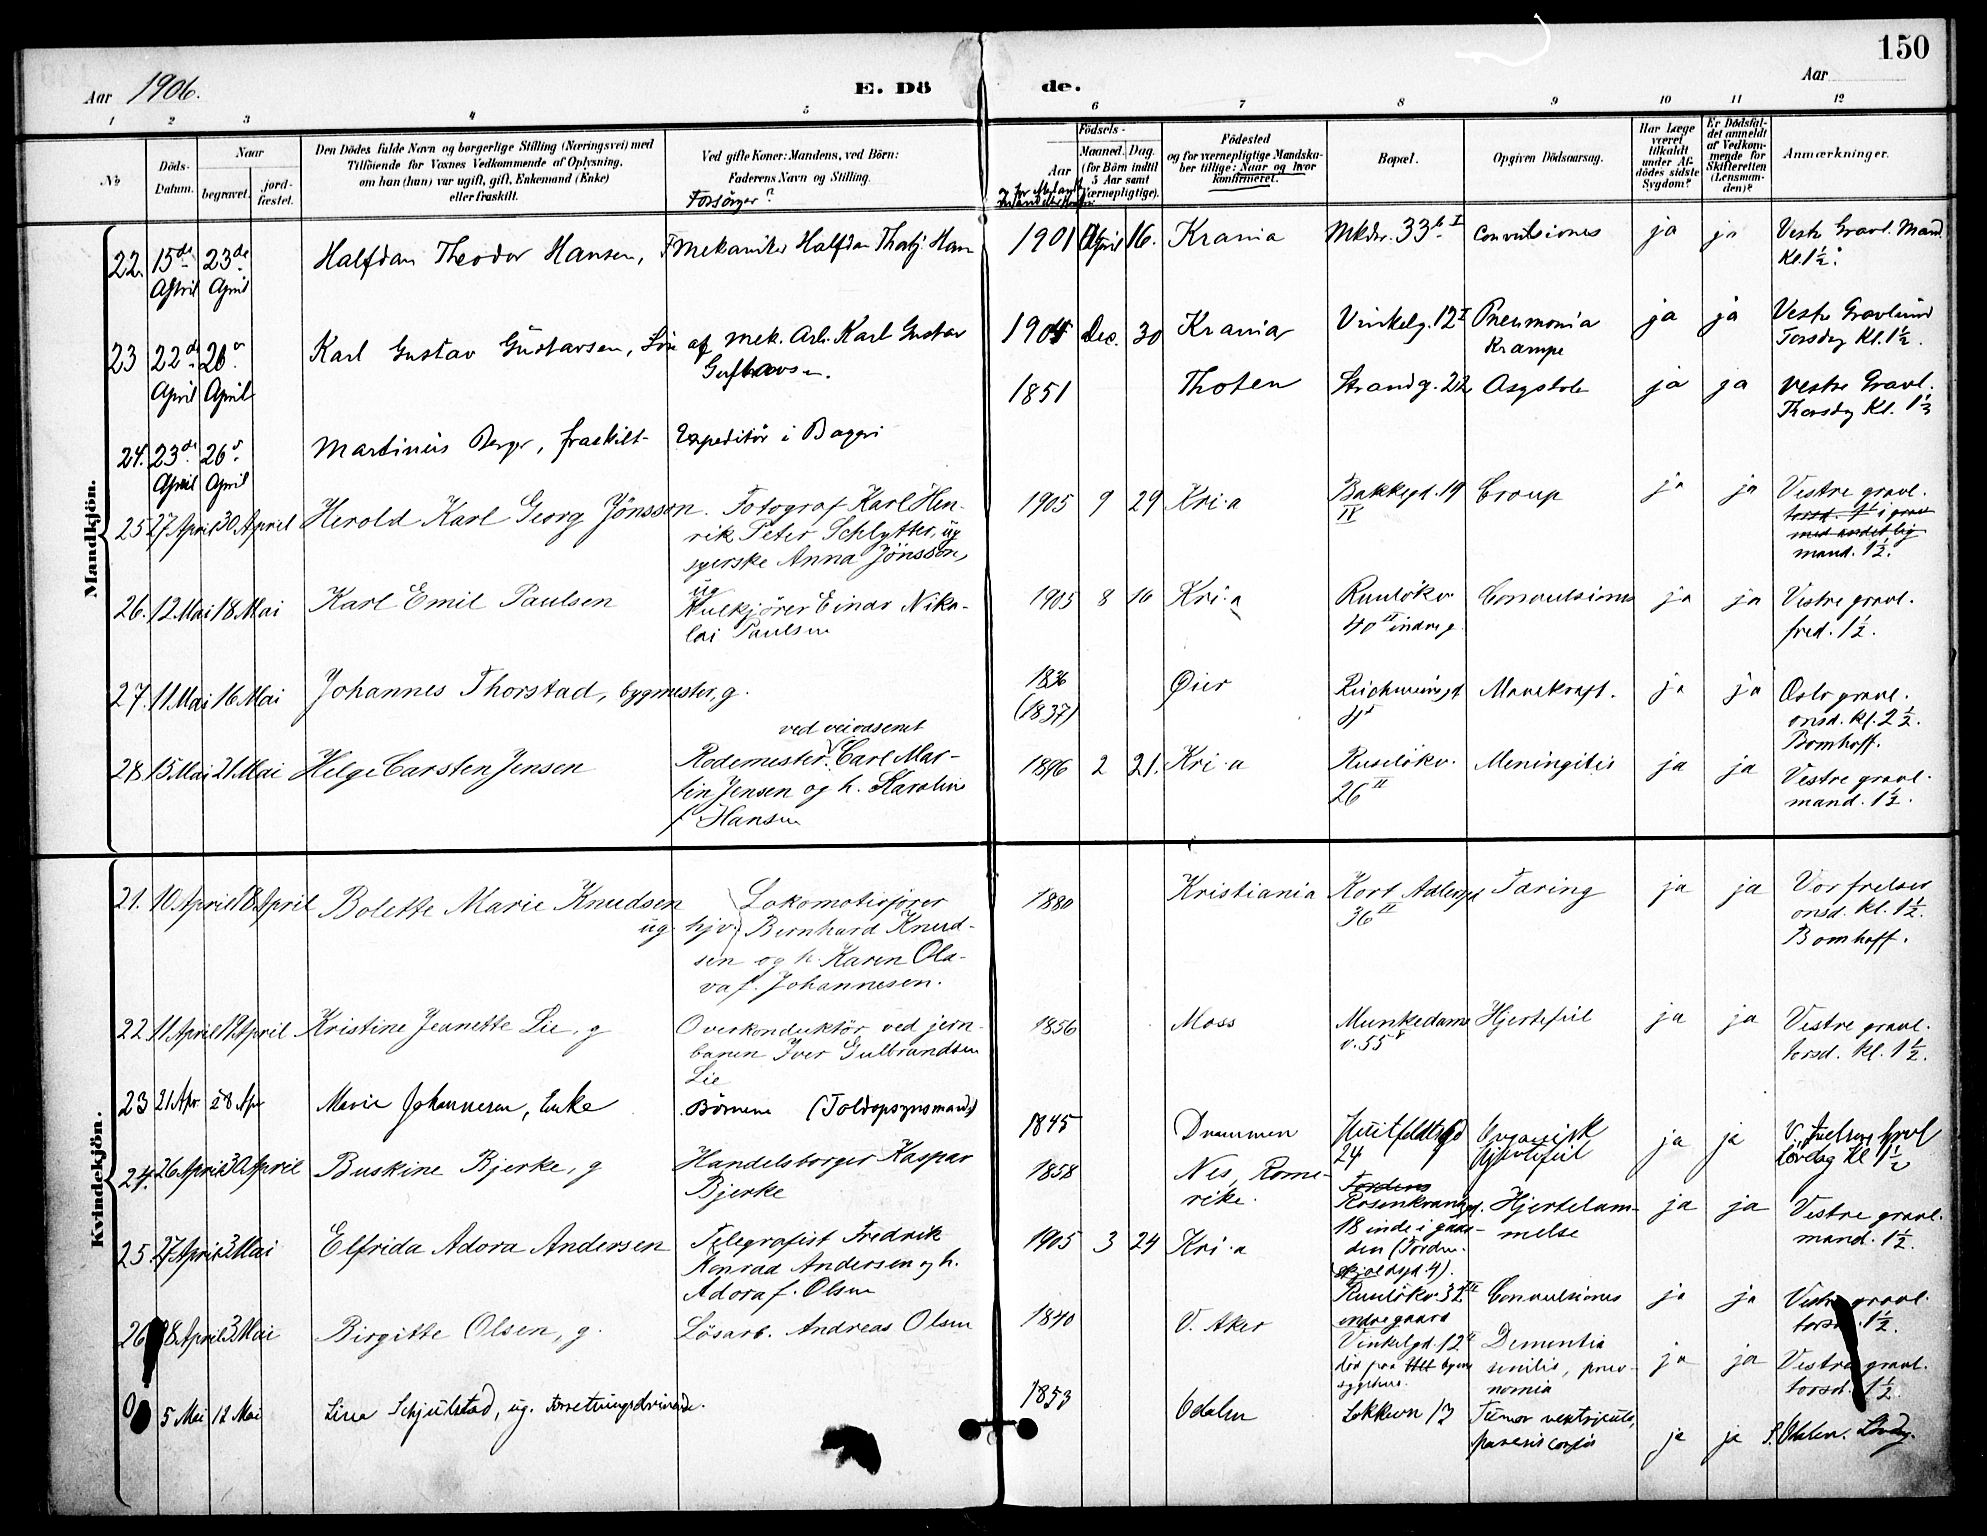 150
Aar 1906.
E. Dö
de.
Aar
1 2 3 4 5 6 7 8 9 10 11 12
No
Döds-Datum.
Naar
begravet.
jord-fæstet.
Den Dödes fulde Navn og borgerlige Stilling (Næringsvei) med
Tilföiende for Voxnes Vedkommende af Oplysning,
om han (hun) var ugift, gift, Enkemand (Enke)
eller fraskilt.
Ved gifte Koner: Mandens, ved Börn:
Faderens Navn og Stilling.
Forsörger
Födsels-
Aar
Maaned. Dag.
(for Börn indtil
5 Aar samt
Værnepligtige).
Födested
og for værnepligtige Mandska-
ber tillige: Naar og hvor
konfirmeret.
Bopæl.
Opgiven Dödsaarsag.
Har Læge
været
tilkaldt
under Af-
dödes sidste
Sygdom?
Er Dödsfal-
det anmeldt
af Vedkom-
mende for
Skifteretten
(Lensman-
den)?
Anmærkninger.
Mandkjön.
22. 15de April 23de April Halfdan Theodor Hansen, Mekaniker Halfdan Thorbj. Han 1901 April 16. Krania Mkdv. 33 b I Convulsiones ja ja Vestr Gravl. Mand. Kl. 1½.
23 22de April 26 April Karl Gustav Gustavsen, Sön af Mek. Arb. Karl Gustav Gustavsen. 1905 Dec. 30 Krania Vinkelg. 12 I Pneumonia Krampe ja ja Vestr Gravlund Torsdag Kl. 1½.
24. 23de April 26 April Martinius Berge, fraskilt Expeditör i Bageri 1851 Thoten Strandg. 22 ja ja Vestre Gravl. Thorsdag Kl. 1½
25 27 April 30 April Herold Karl Georg Jönsson. Fotograf Karl Hen-
rik Peter Schlytter, ug
syerske Anna Jönsson,
ug
1905 9 29 Kri.a Bakkegd. 19 II Croup ja ja Vestre gravl.
mand. 1½.
26. 12 Mai 18 Mai Karl Emil Paulsen Kulkjörer Einar Niko-
lai Paulsen
1905 8 16 Kri.a Ruselökv. 40 II indre g. Convulsiones ja ja Vestre gravl.
fred. 1½.
27. 11 Mai 16 Mai Johannes Thorstad, bygmester, g. 1836 (1837) Øier Marekraft. ja ja Oslo gravl.
onsd. kl. 2½.
Bomhoff.
28. 15 Mai 21 Mai Helge Carsten Jensen ved veivæsenet
Rodemester Carl Mar-
tin Jensen og h. Karoline
f. Hansen
1896 2 21. Kri.a Ruselökv. 26 II Meningitis ja ja Vestre gravl.
mand. 1½.
Kvindekjön.
21. 10 April 18 April Bolette Marie Knudsen ug. hjv. Lokomotivförer
Bernhard Knud-
sen og h. Karen Ola-
va f. Johannesen.
1880 Kristiania Kort Adlersgd 36 II Tæring ja ja Vor frelser
onsd. kl. 1½.
Bomhoff.
22. 11 April 19 April Kristine Jeanette Lie, g Overkonduktör ved jern-
banen Iver Gulbrandsen
Lie
1856 Moss Munkedams v. 55 V Hjertefeil ja ja Vestre gravl.
torsd. kl. 1½.
23 21 Apr 28 Apr Marie Johannesen, Enke Börnene (Toldopsynsmand) 1845 Drammen Huitfeldtsgd 24 Organisk Hjertefeil ja ja V. Frelsers Gravl
Lördag Kl 1½
24. 26 April 30 April Buskine Bjerke, g Handelsborger Kaspar
Bjerke
1858 Nes, Rome-
rike.
Rosenkrantzgd.
18 inde i gaar-
den (Torden-
skjoldsgd 4).
Hjertelam-
melse
ja ja Vestre gravl.
mand. 1½.
25. 27 April 3 Mai Elfrida Adora Andersen Telegrafist Fredrik
Konrad Andersen og h.
Adora f. Olsen
1905 3 24 Kri.a Ruselökv. 32 III
indre gaard
Convulsiones ja ja Vestre gravl.
torsd. 1½.
26 28 April 3 Mai Birgitte Olsen, g. Lösarb. Andreas Olsen 1840 V. Aker Vinkelgd. 12
död paa byens
sygehus.
Dementia
senilis, pneu-
monia
ja ja Vestre gravl.
torsd. 1½.
5 Mai 12 Mai Lina Schjulstad, ug. Forretningsdrivende. 1853 Odalen Lökkevn 13 Tumor ventriculi,
paresis cordis
ja ja S. Odalen. Lördag.